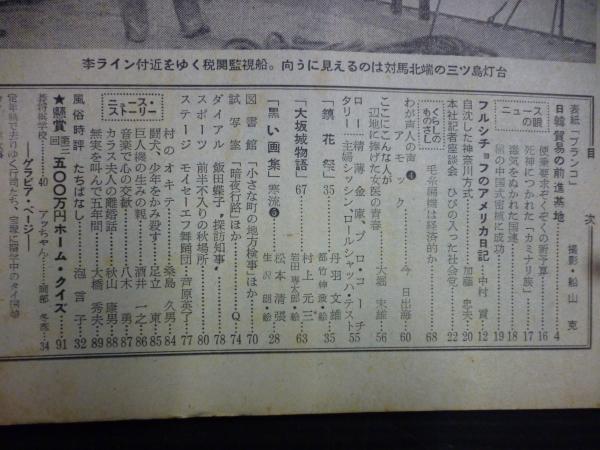 李ライン付近をゆく税関監視船。向うに見えるのは対馬北端の三ツ島灯台
目次
表紙「ブランコ」 撮影・船山克
日韓貿易の前進基地 4
ニュースの眼
便乗要求ぞくぞくの新予算 16
死神につかれた「カミナリ族」 17
毒気をぬかれた国連 18
鼠の中国式密殺に成功 19
フルシチョフのアメリカ日記 中村貢 12
自沈した神奈川方式 加藤忠夫 20
本社記者座談会 ひびの入った社会党 22
くらしのものさし
毛糸編機は経済的か 68
わが声人の声❹
アモック 今日出海 60
ここにこんな人が
辺地に捧げた女医の青春 大堀末雄 56
ロータリー
精薄金庫 プロ・コーチ
主婦シッシン ロールシャッハ・テスト
「鎮花祭」 35 丹羽文雄
都竹伸政・絵 35
「大坂城物語」 67 村上元三
岩田専太郎・絵 63
「黒い画集」寒流❺ 松本清張
生沢朗・絵 28
図書館 「小さな町の地方検事」ほか 70
試写室 「暗夜行路」ほか Q 74
ダイアル 飯田蝶子“探訪知事” 78
スポーツ 前半不入りの秋場所 80
ステージ モイセーエフ舞踊団 芦原英了 77
ニュース・ストーリー
村のオキテ 桑島久男 84
闘犬、少年をかみ殺す 足立東 85
巨人機の生みの親 酒井一之 86
音楽で心の交歓 八木勇 87
カラス夫人の離婚話 秋山康男 88
無実を叫んで五年間 大橋秀夫 89
風俗時評 たちばなし 泡言子 32
★懸賞第三回 五〇〇万円ホーム・クイズ 91
長持級学校 40
アワちゃん 岡部冬彦 34
グラビア・ページ